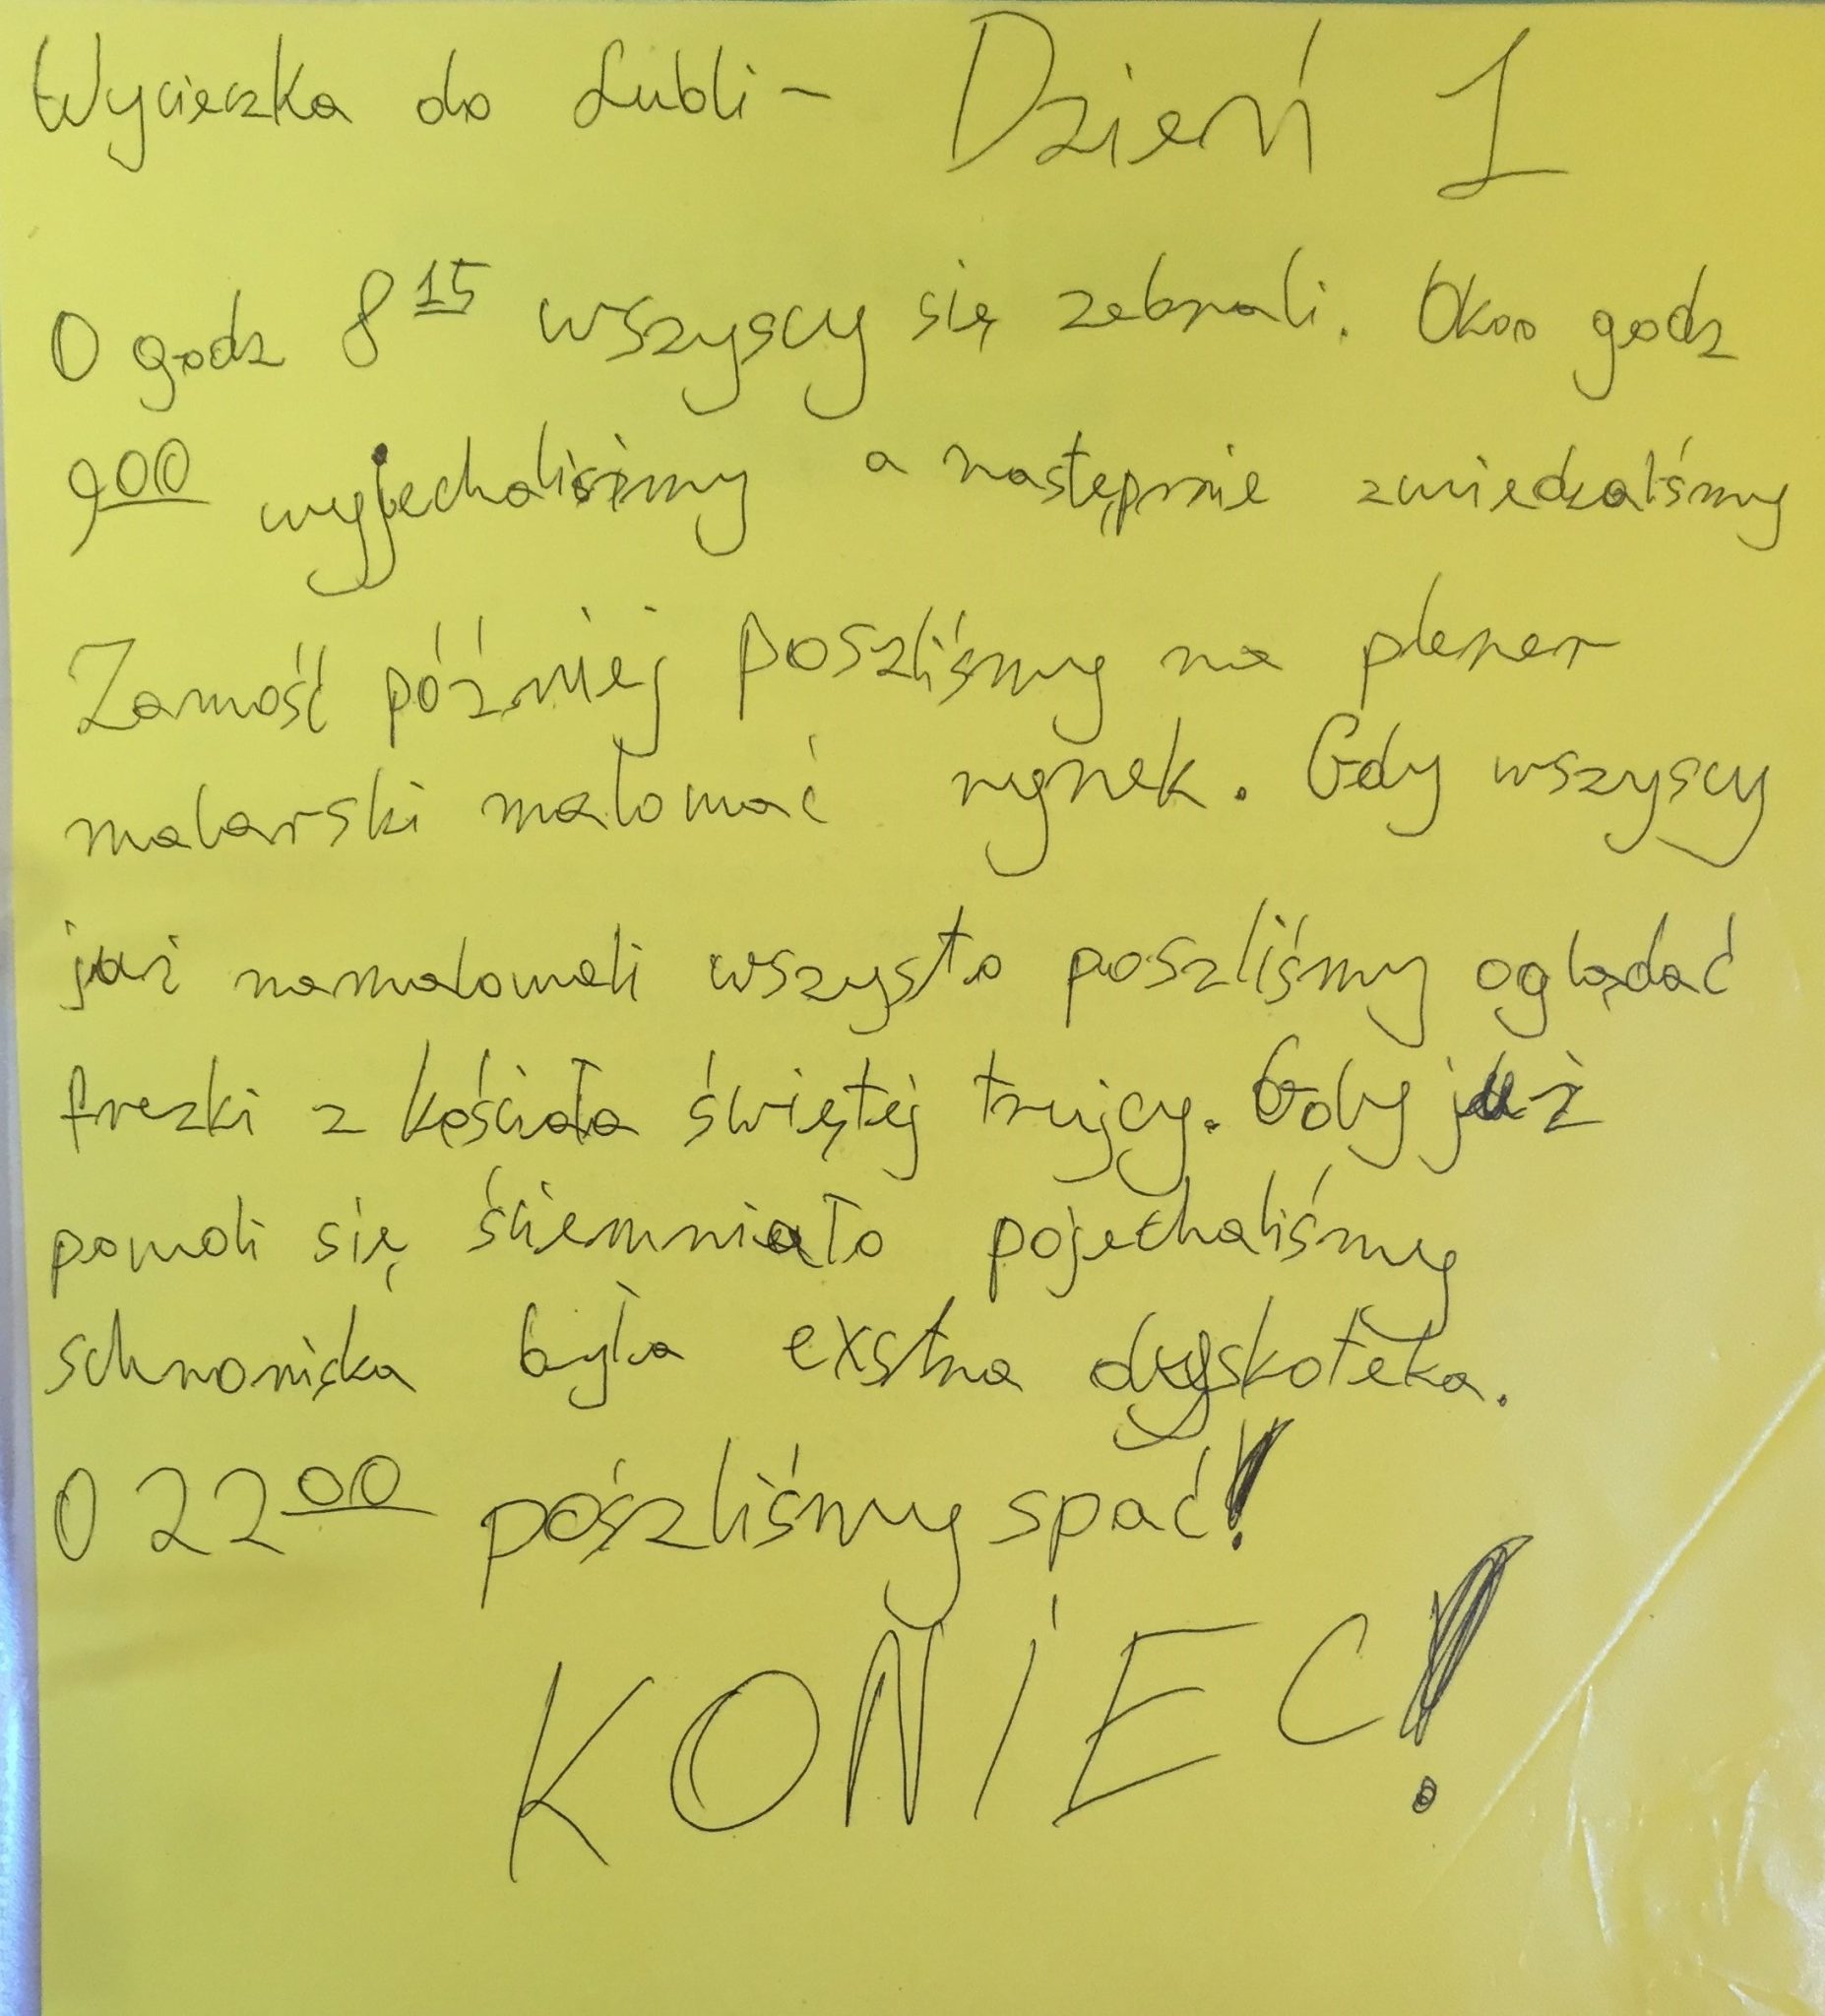 Wycieczka do Lubli - Dzień 1
O godz 8 15 wszyscy się zebrali. Okoo godz
9 00 wyjechaliśmy a następnie zwiedzaliśmy
Zamość później poszliśmy na plener
malarski malować rynek. Gdy wszyscy
już namalowali wszysto poszliśmy oglądać
frezki z kościoła świętej trujcy. Gdy już
pomoli się ściemniało pojechaliśmy
schroniska była exstra dyskoteka.
O 22 00 poszliśmy spać!
KONIEC!